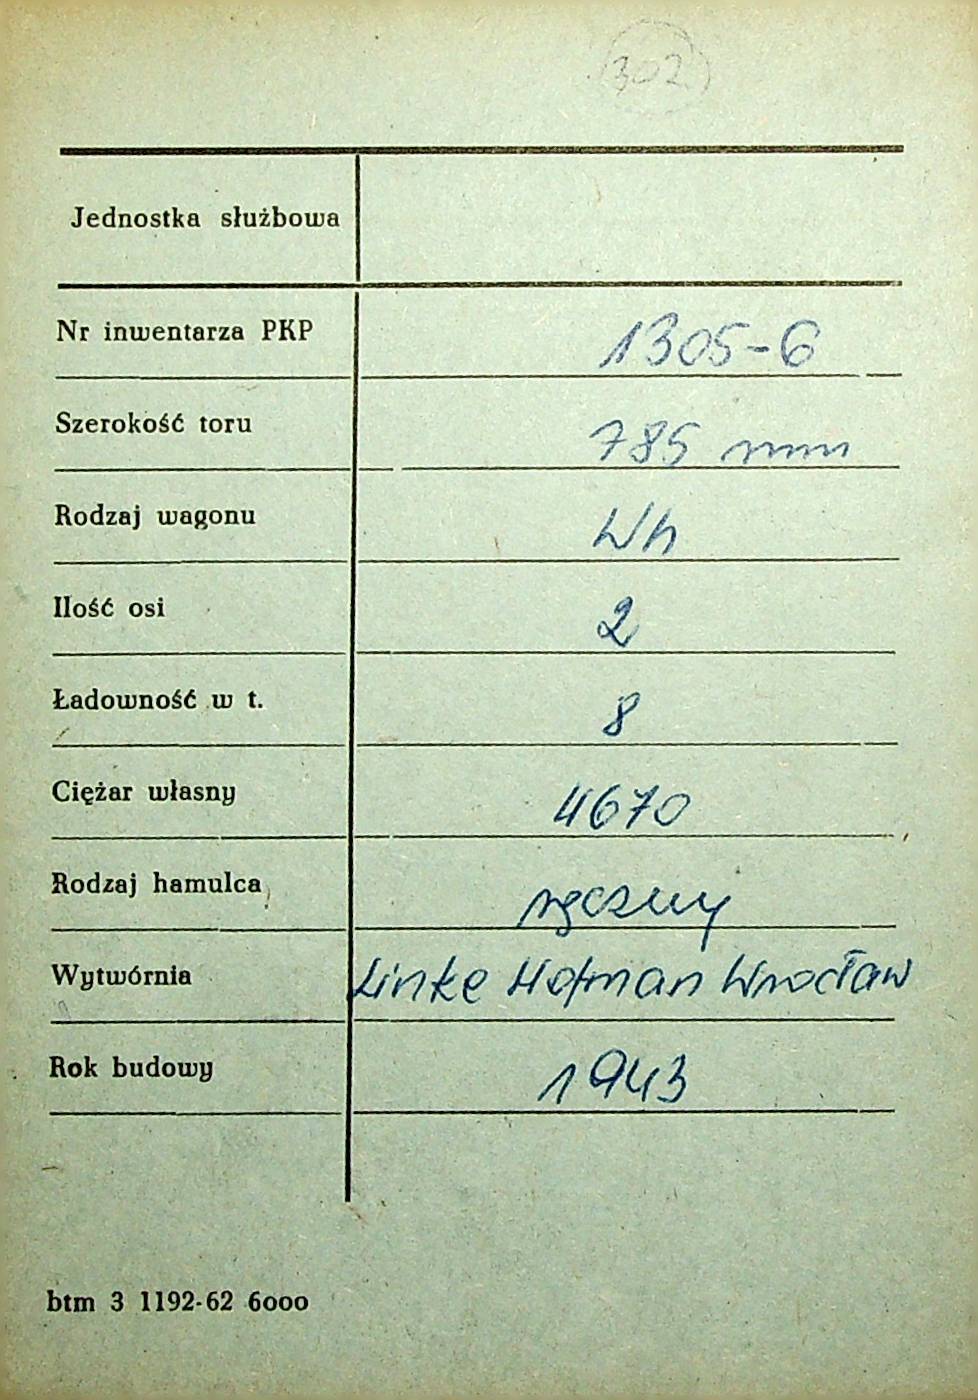 302
Jednostka służbowa
Nr inwentarza PKP 1305-6
Szerokość toru 785 mm
Rodzaj wagonu Wh
Ilość osi 2
Ładowność w t. 8
Ciężar własny 4670
Rodzaj hamulca ręczny
Wytwórnia Linke Hofman Wrocław
Rok budowy 1943
btm 3 1192-62 6000